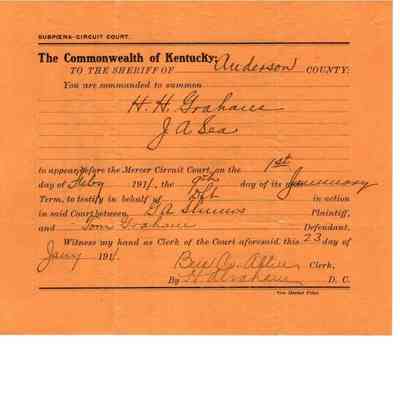 SUBPŒNA—CIRCUIT COURT.
The Commonwealth of Kentucky:
TO THE SHERIFF OF Anderson COUNTY:
You are commanded to summon
H. H. Graham
J A Sea
to appear before the Mercer Circuit Court, on the 1st
day of Feby 1911, the 9th day of its January
Term, to testify in behalf of Dft in action
in said Court between Plaintiff,
and Tom Graham Defendant.
Witness my hand as Clerk of the Court aforesaid, this 23 day of
Jany 1911. Clerk,
By D. C.